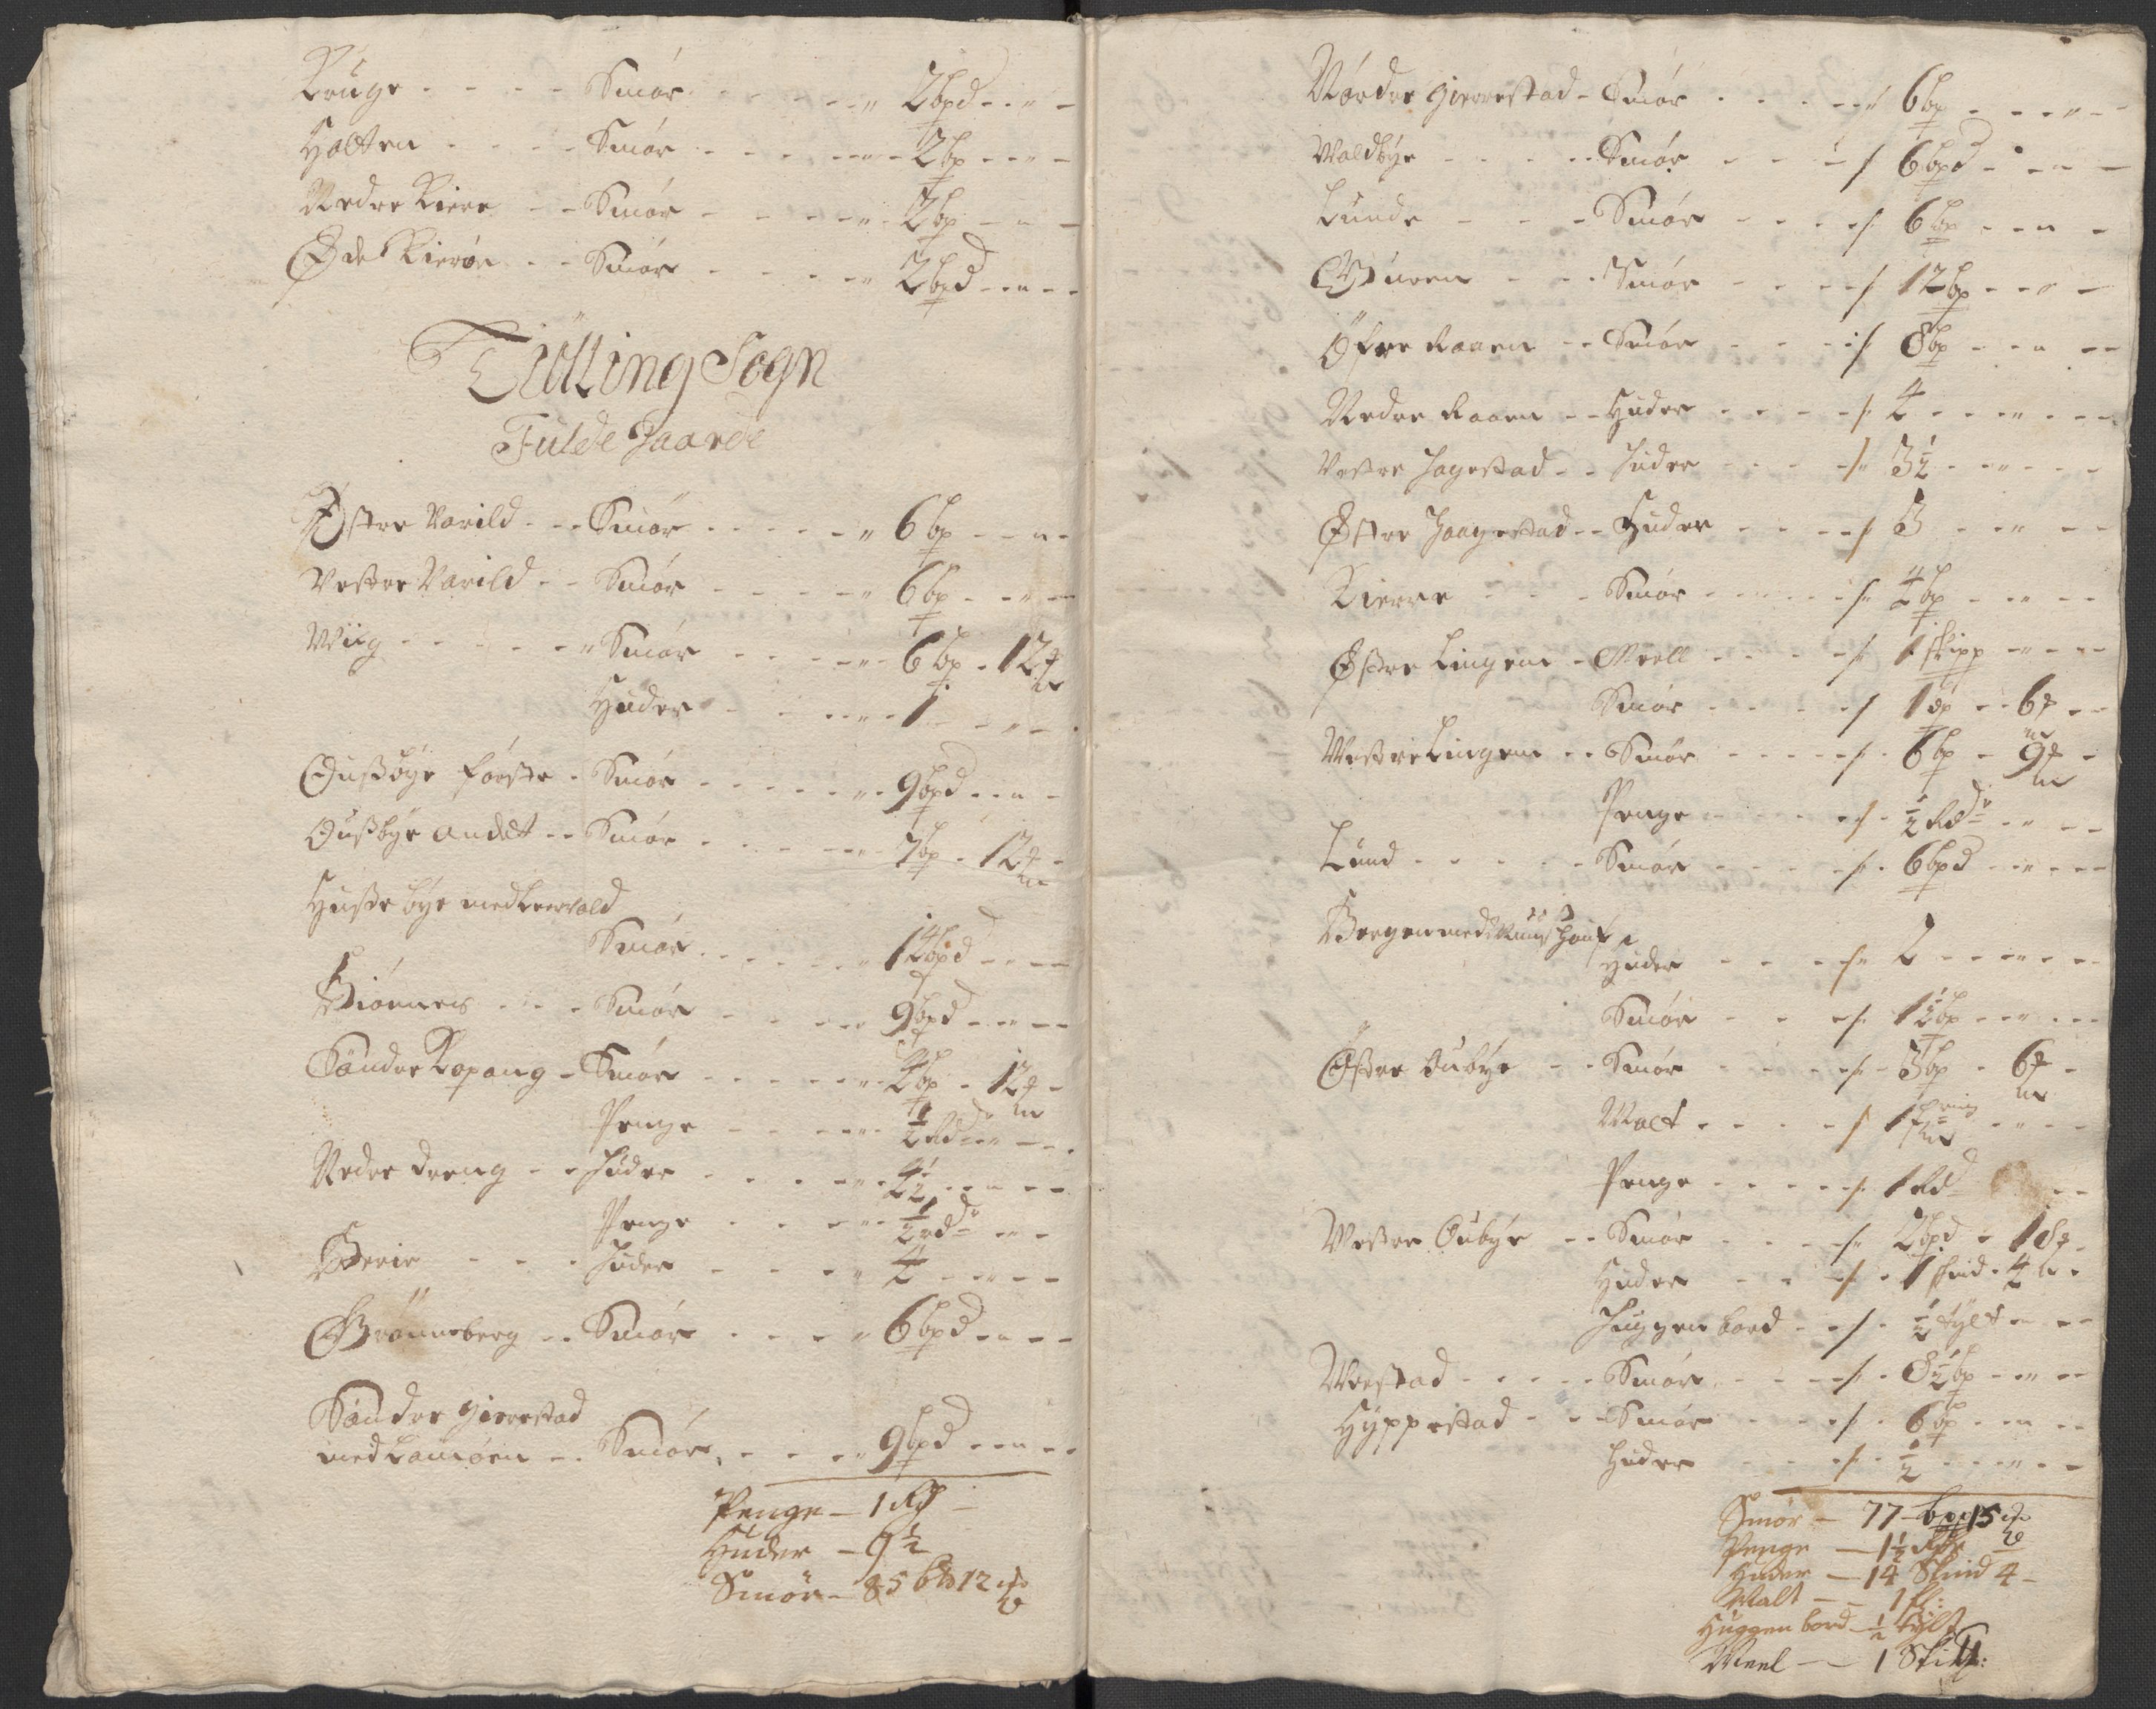 Kruge - - - - Smør - - - - - „ 2 bpd - - „ -
Holtten - - - - Smør - - - - - - 2 bp - - „ -
Nedre Kiere - - Smør - - - - - „ - 2 bp - „ -
Øde Kierøe - - Smør - - - - „ 2 bpd - - „ - -
Tiülling Sogn
Fulde Gaarde
Østre Varild - - - Smør - - - - - „ 6 bp - - „ -
Vestre Varild - - Smør - - - - - „ 6 bp - - „ -
Wiig - - - - - „ Smør - - - - - „ - 6 bp - 12 ₰
Huder - - - - - - 1 - - „ - -
Ousbøye første - Smør - - - - - „ - 9 bpd - - „ -
Ousbye andet - - Smør - - - - - „ - 7 bp - 12 ₰ -
Hussebye med Leervold
Smør - - - - - - „ 14 bpd - - - -
Biønnes - - - Smør - - - - - „ 9 bpd - - „ - -
Søndre Kopang - Smør - - - - - „ - 4 bp - 12 ₰ -
Penge - - - - „ - ½ Rd - „ - -
Nedre Dreng - - Huder - - - - - „ - 4½ - - „ - -
Penge - - - „ - ½ Rdr „ - -
Berir - - - Huder - - - - „ 4 - - „ - -
Grønneberg - - Smør - - - - „ 6 bpd - „ - -
Søndre Gierrestad
med Lamøen - - Smør - - - - „ 9 bpd - - „ - -
Penge - 1 Rd -
Huder - 9½
Smør - 85 bp 12 ₰
Nordre Gierrestad - Smør - - - - „ 6 bp - - - „ -
Waldbye - - - - - Smør - - - / 6 bpd - - „ -
Lunde - - - - Smør - - - - / 6 bp - - „ -
Guren - - - Smør - - - - / 12 bp - - „ -
Øfre Raaen - - Smør - - - / 8 bp - - „ - -
Nedre Raaen - - Huder - - - - / 4 - - - „ - - -
Vestre Hagestad - - Huder - - - / 3½ - - „ - - -
Østre Haagestad - - Huder - - - - / 3 - - „ - -
Kierre - - - Smør - - - - - / 4 bp - - „ - -
Østre Lingem - Meell - - - - / 1 skipp - „ - - -
Smør - - - - / 1 bp - - 6 ₰ - -
Westre Lingem - - Smør - - - - - / - 6 bp - 9 ₰ -
Penge - - - - / - ½ Rdr - „ - -
Lund - - - - - Smør - - - - / - 6 bpd - „ - - -
Bergen med
Huder - - - - / 2 - - - „ - - -
Smør - - - / - 1½ bp - - „ - - -
Østre Oubye - - - Smør - - - - / - 3 bp - 6 ₰ -
Malt - - - - / 1 - „ - -
Penge - - - - - / 1 Rd - -
Westre Oubye - - Smør - - - - / 2 bpd - 18 ₰ -
Huder - - - / - 1 skind - 4 - -
Huggen bord - - / - ½ tylt - „ - -
Westad - - - - - Smør - - - - / - 8½ bp - - „ - -
Hyppestad - - - Smør - - - - / - 6 bp - - „ - -
Huder - - - / - ½ - - „ - - -
Smør - 77 bpd 15 ₰
Penge - 1½ Rdr -
Huder - 14 Skind 4 -
Malt - - 1 fl:
Huggen bord - ½ tylt
Meel - - 1 Skip: